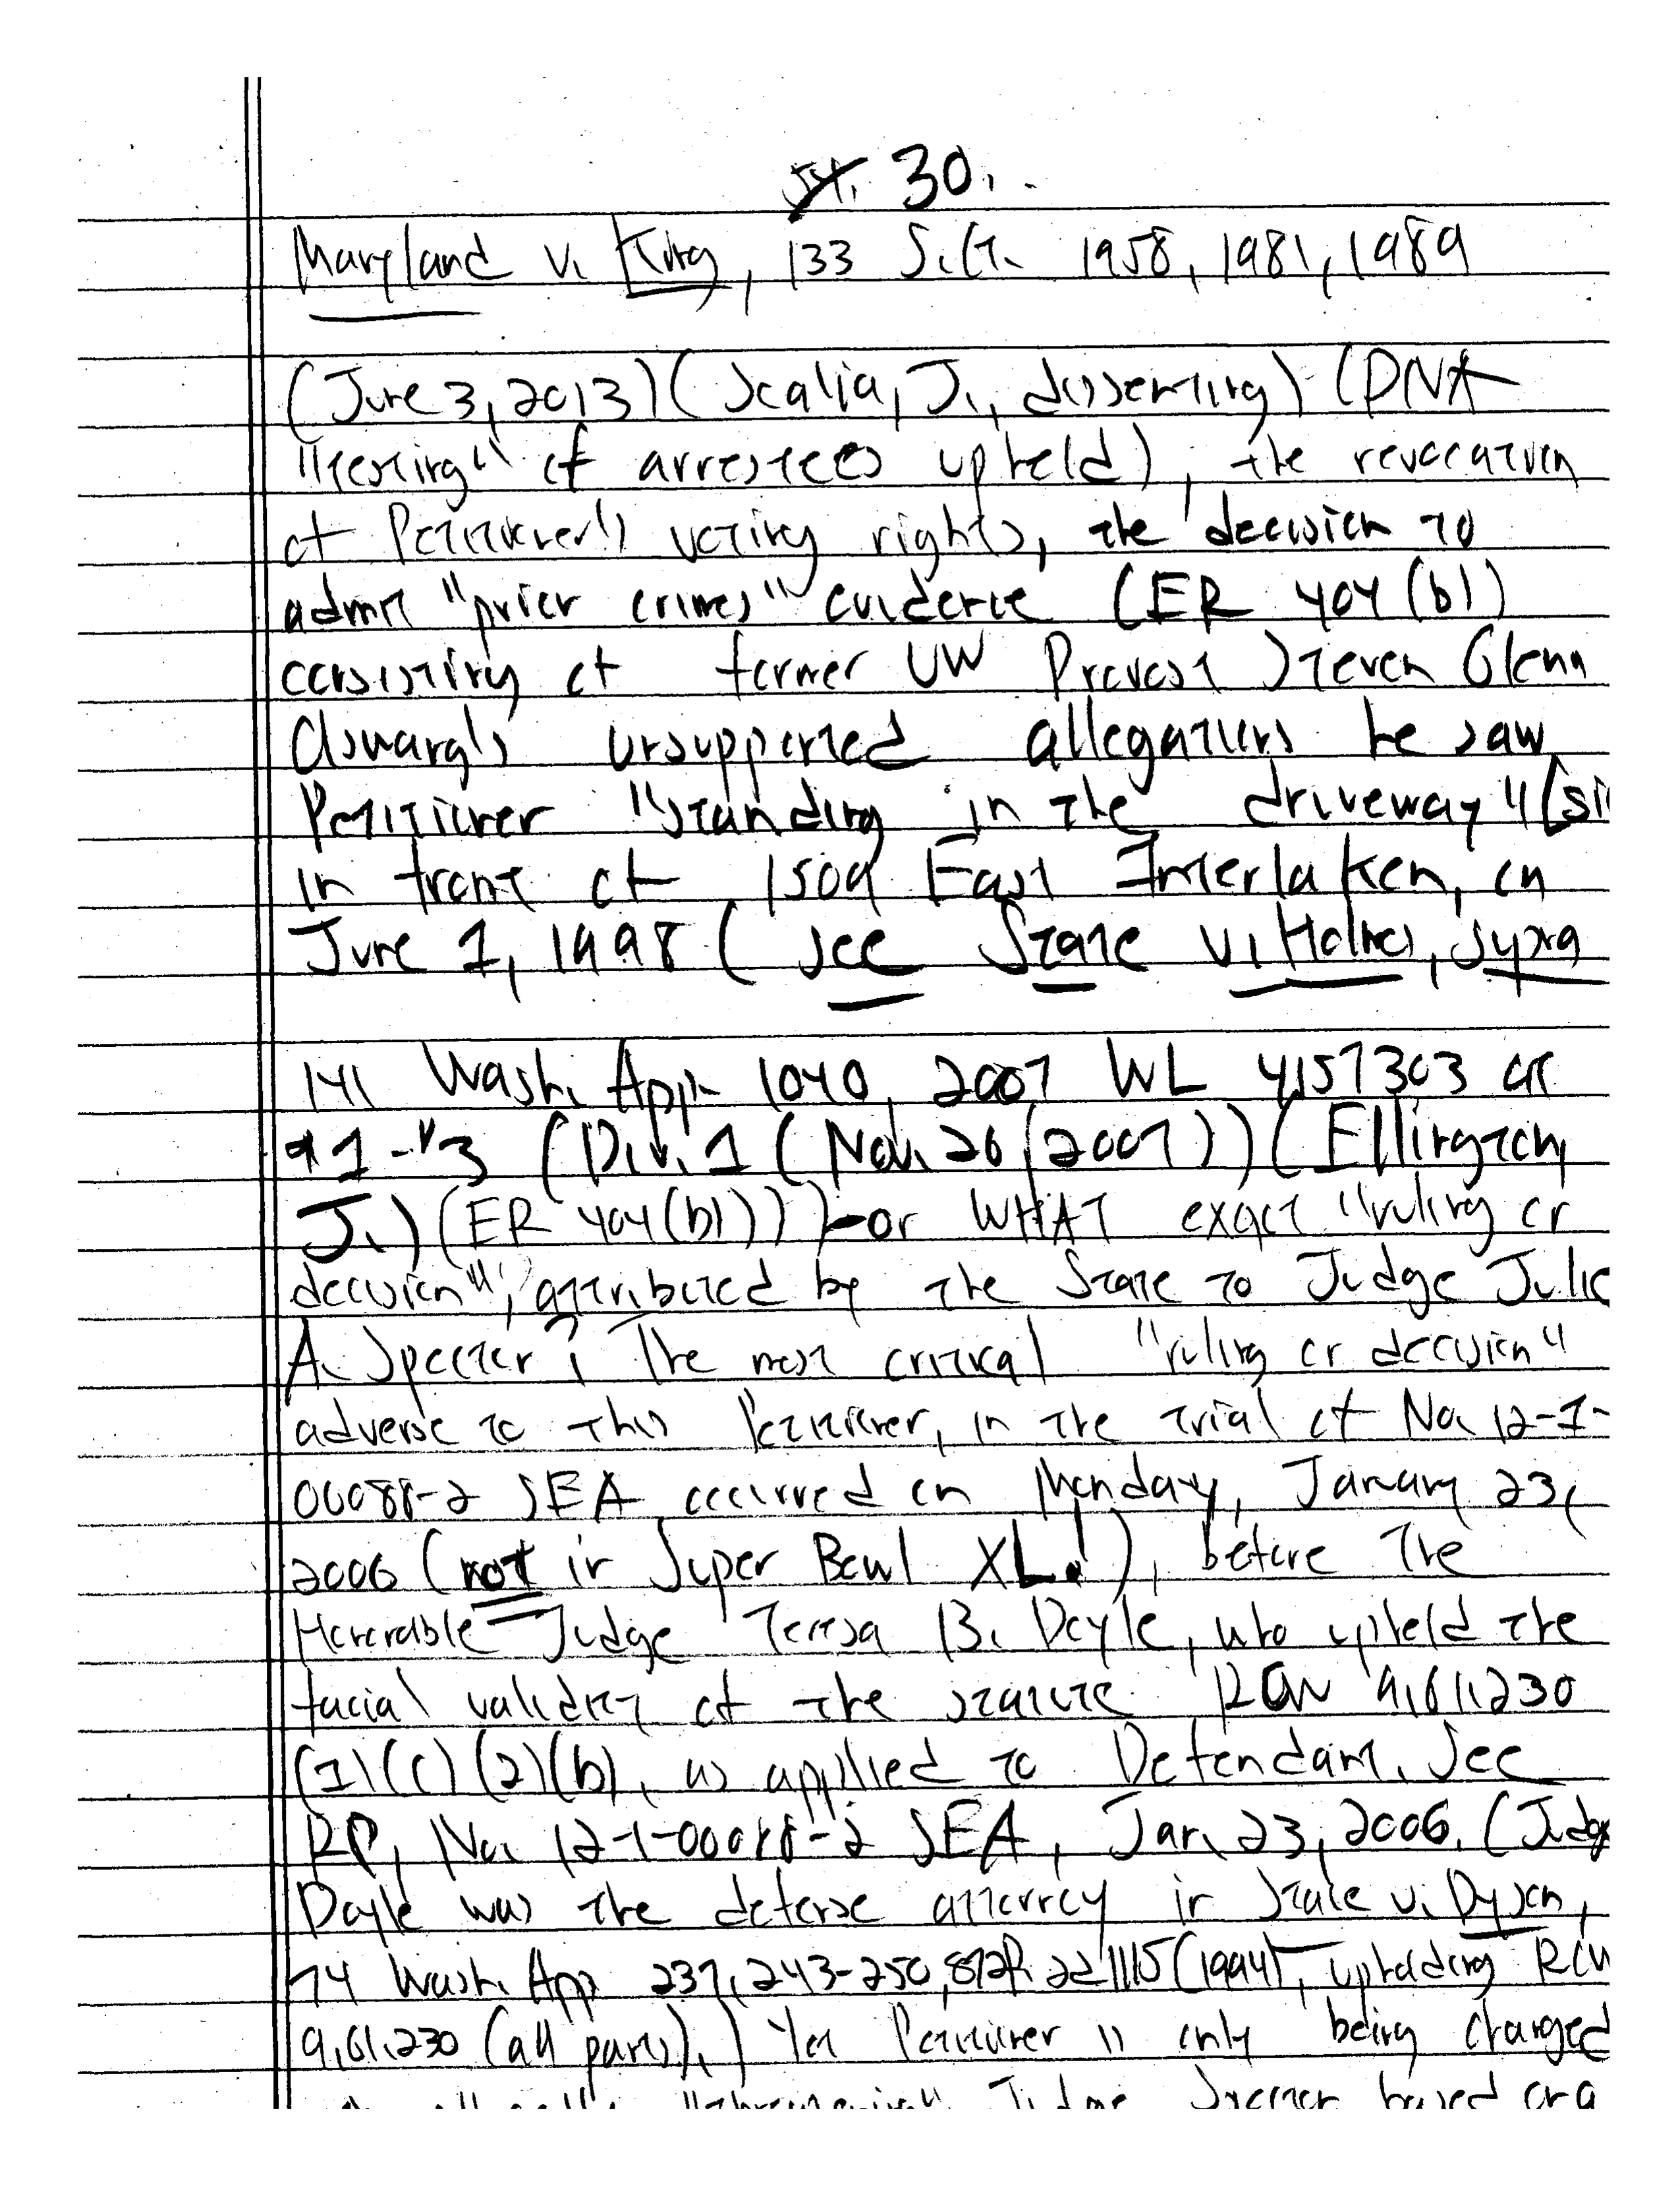 30.
Maryland v. King, 133 S.Ct. 1958, 1981, 1989
(June 3, 2013) (Scalia, J., dissenting) (DNA
"testing" of arrestees upheld), the revocation
of Petitioner's voting rights, the decision to
admit "prior crimes" evidence (ER 404(b)
consisting of former UW Provost Steven Glenn
Olswang's unsupported allegations he saw
Petitioner "standing in the driveway" [si
in front of 1509 East Interlaken, on
June 1, 1998 (see State v. Holmes, supra
141 Wash. App. 1040, 2007 WL 4157303 at
*1-*3 (Div. 1 (Nov. 26, 2007)) (Ellington,
J.) (ER 404(b))) - or WHAT exact "ruling or
decision", attributed by the State to Judge Julie
A. Specter? The most critical "ruling or decision"
adverse to this Petitioner, in the trial of No. 12-1-
00088-2 SEA occurred on Monday, January 23,
2006 (not in Super Bowl XL!), before the
Honorable Judge Teresa B. Doyle, who upheld the
facial validity of the statute RCW 9.61.230
(1)(c) (2)(b), as applied to Defendant. See
RP, No. 12-1-00088-2 SEA, Jan. 23, 2006. (Judge
Doyle was the defense attorney in State v. Dyson,
74 Wash. App. 237, 243-250, 872 P.2d 1115 (1994), upholding RCW
9.61.230 (all parts).) Yet Petitioner is only being charged
"threatening" Judge Specter based on a